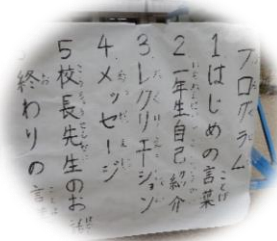 プログラム
1はじめの言葉
2一年生自己紹介
3レクリエーション
4.メッセージ
5校長先生のお話
終わりの言